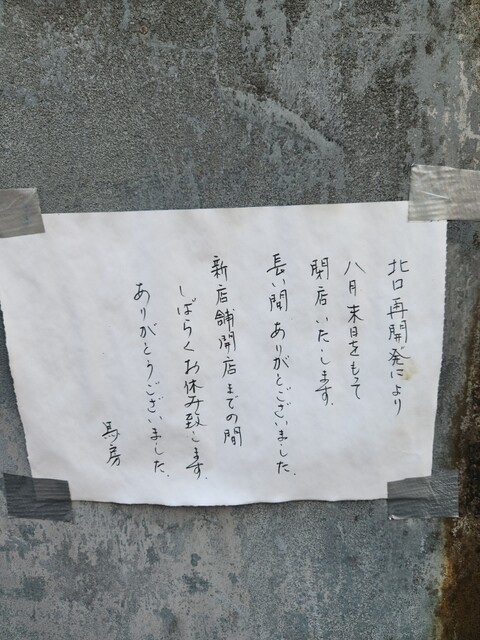 北口再開発により
八月末日をもって
閉店いたします。
長い間 ありがとございました。
新店舗開店までの間
しばらくお休み致します。
ありがとうございました。
馬房